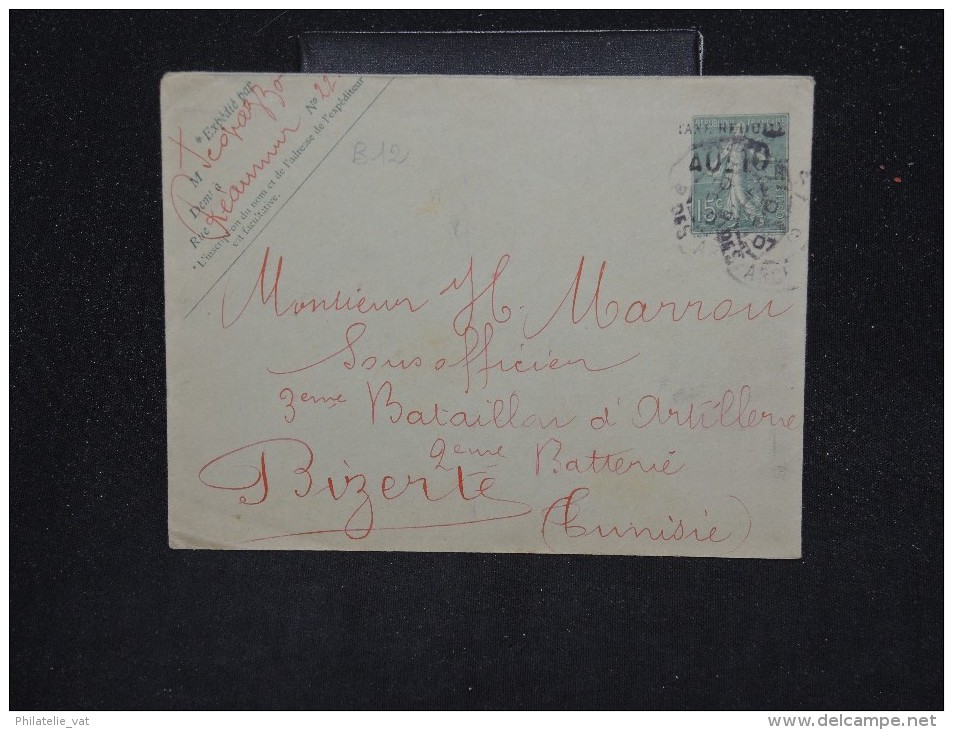 * Expédié par
M
Demt à
Rue Réaumur No 22
* L'inscription du nom et de l'adresse de l'expéditeur
est facultative.
B12
TAXE RÉDUITE
A 0f,10
15c
07
Monsieur H. Marrou
Sous officier
3eme Bataillon d'Artillerie
2eme Batterie
Bizerte
(Tunisie)
Philatelie_vat
www.delcampe.net